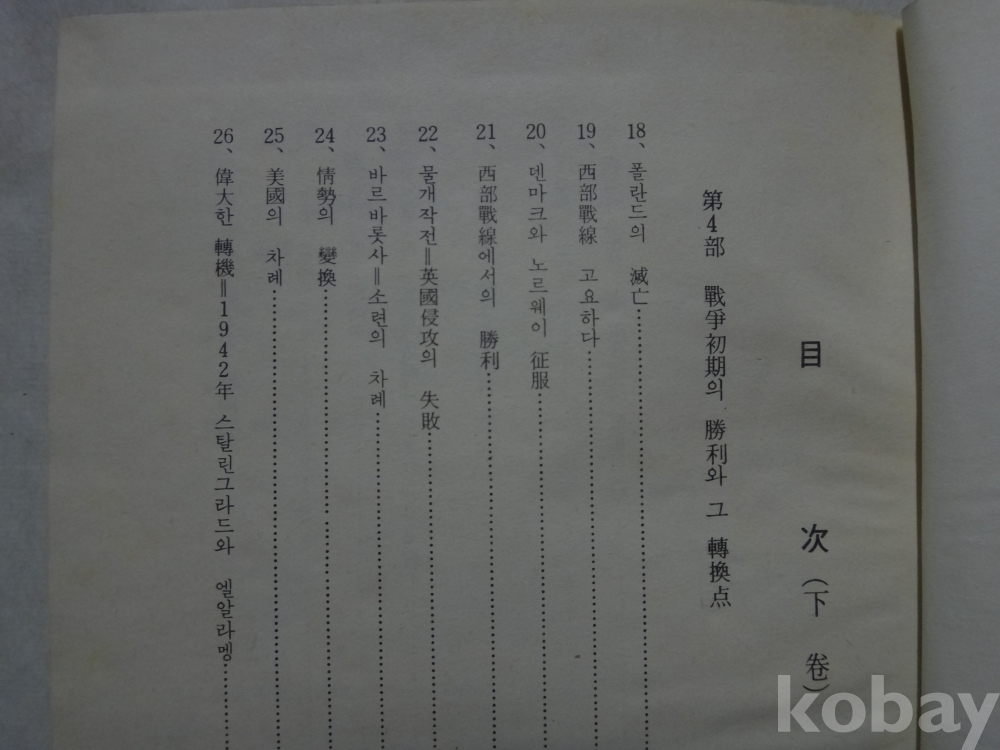 目 次 (下 卷)
第4部 戰爭初期의 勝利와 그 轉換点
18、폴란드의 滅亡
19、西部戰線 고요하다
20、덴마크와 노르웨이 征服
21、西部戰線에서의 勝利
22、물개작전＝英國侵攻의 失敗
23、바르바롯사＝소련의 차례
24、情勢의 變換
25、美國의 차례
26、偉大한 轉機＝1942年 스탈린그라드와 엘알라멩
kobay